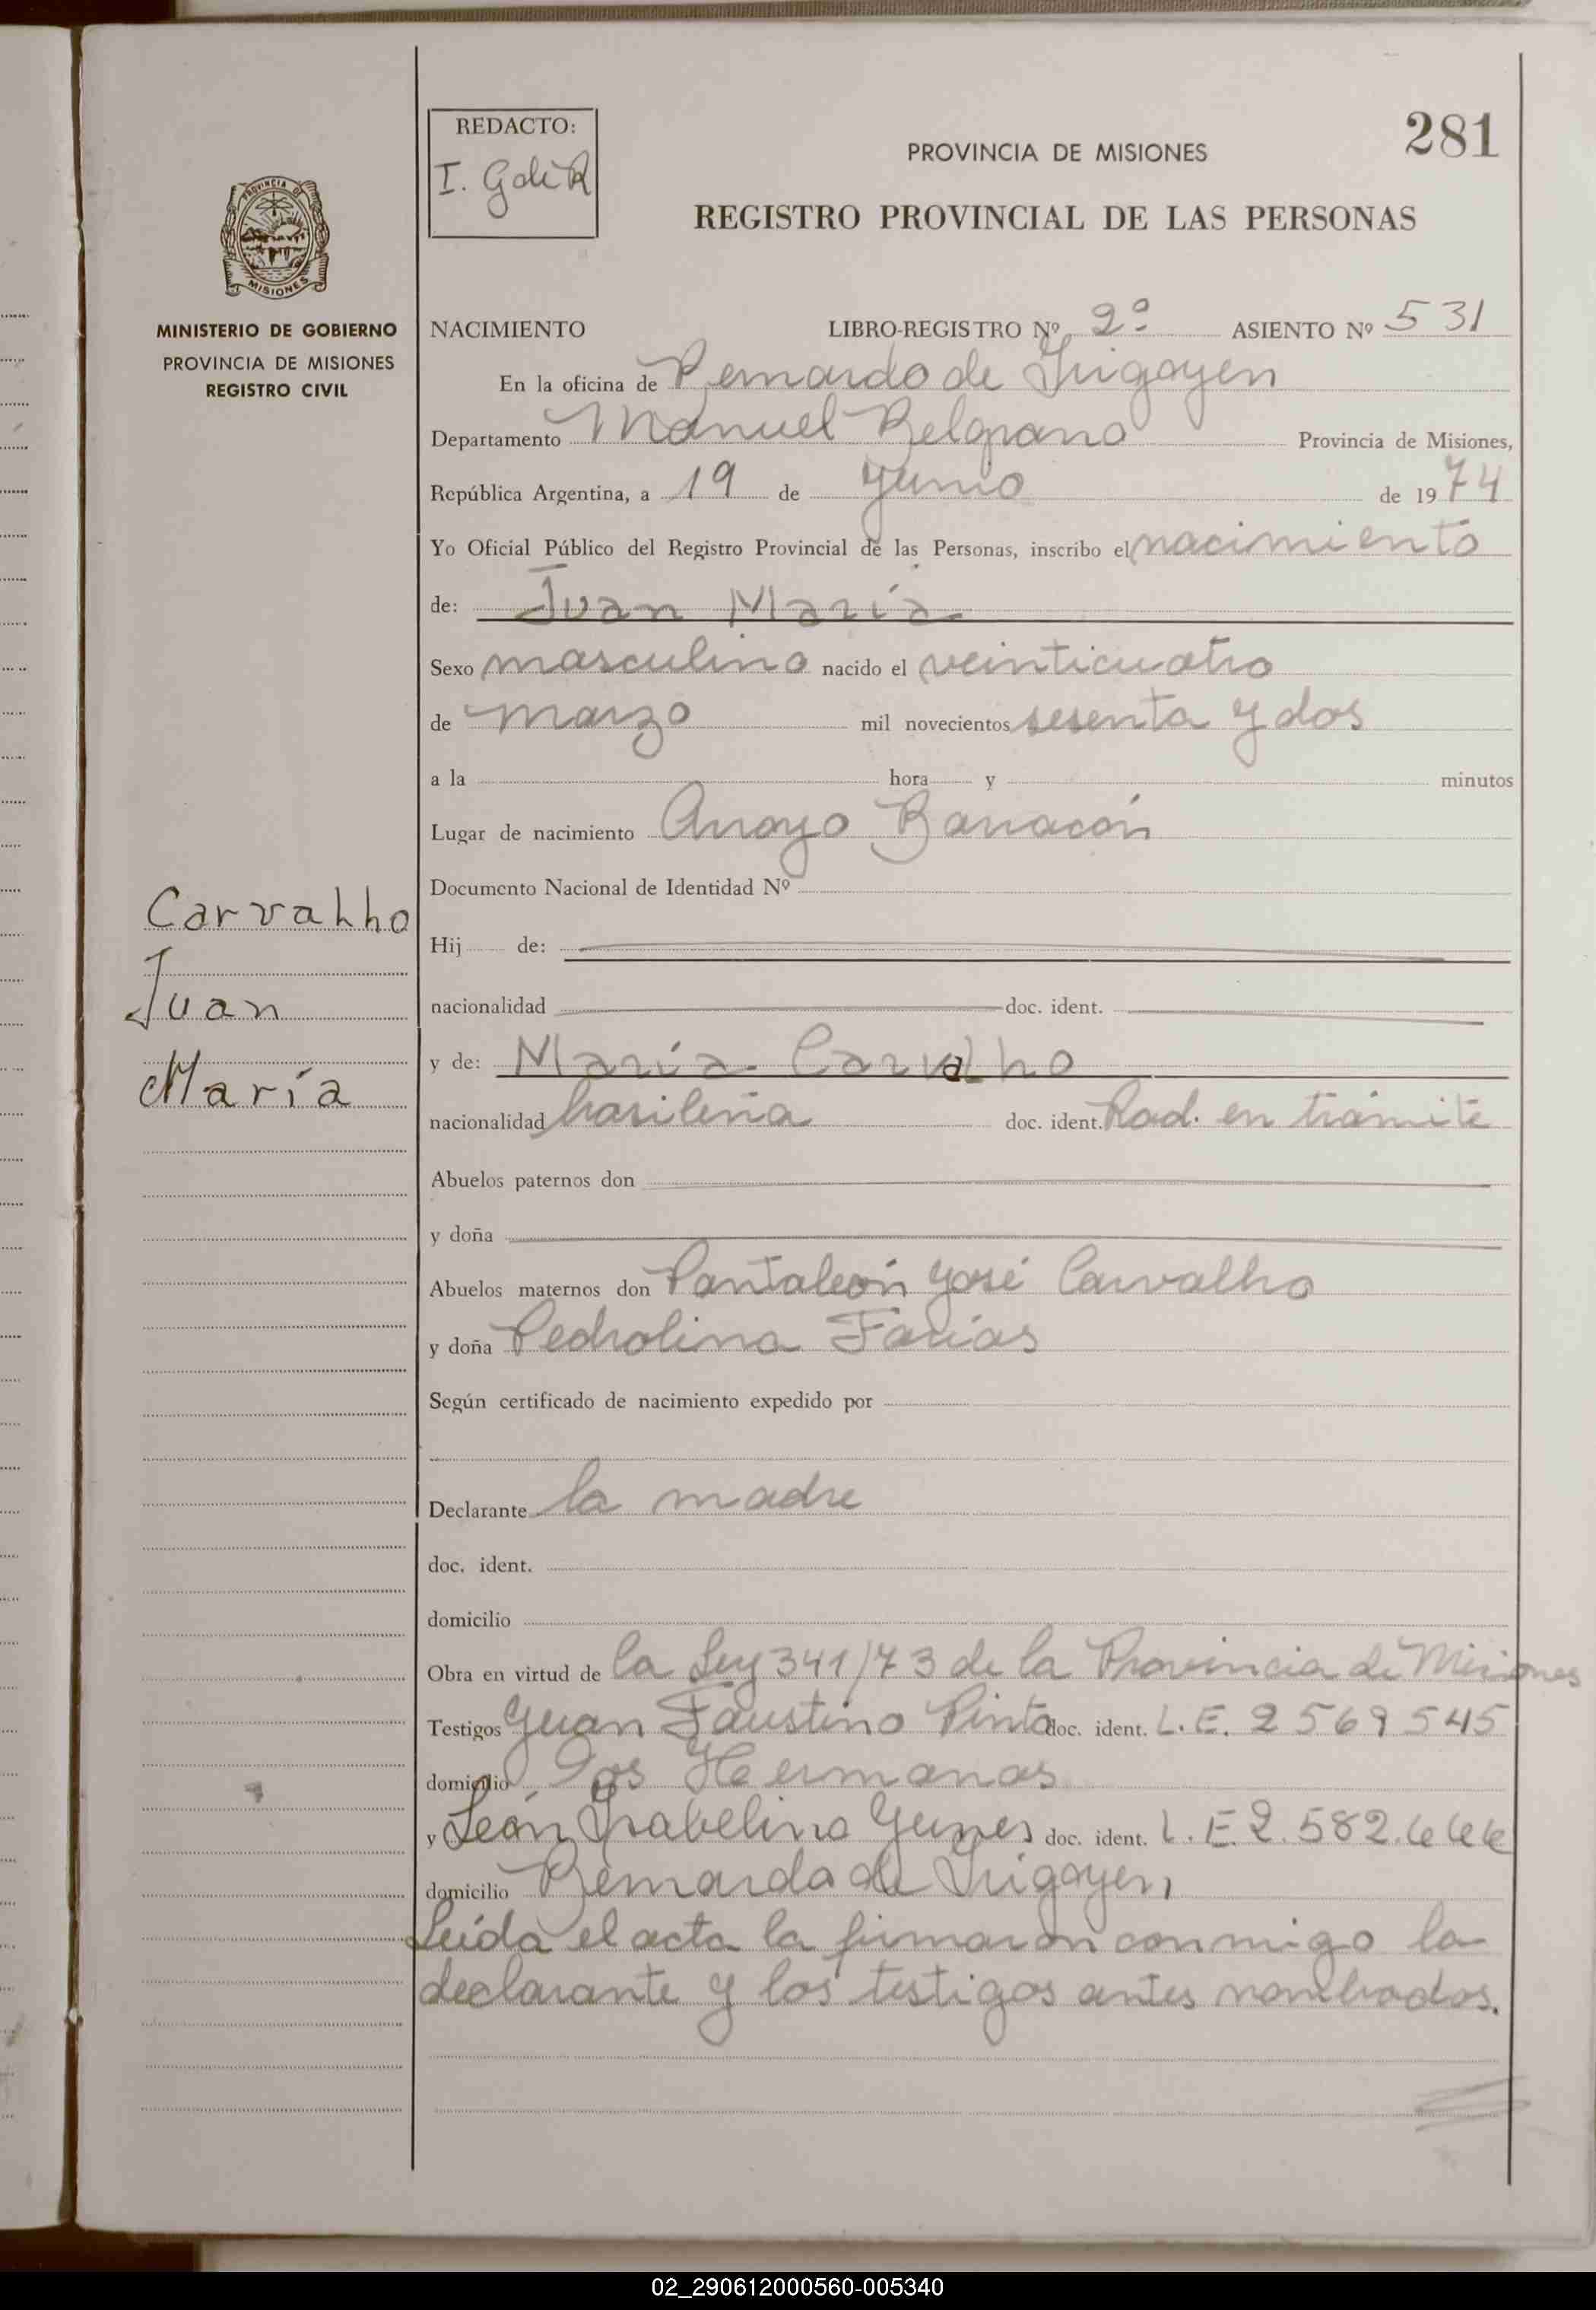 REDACTO:
I.
281
PROVINCIA DE MISIONES
REGISTRO PROVINCIAL DE LAS PERSONAS
PROVINCIA DE
MISIONES
MINISTERIO DE GOBIERNO
PROVINCIA DE MISIONES
REGISTRO CIVIL
NACIMIENTO LIBRO-REGISTRO Nº 2º ASIENTO Nº 531
En la oficina de Bernardo de Irigoyen
Departamento Manuel Belgrano Provincia de Misiones,
República Argentina, a 19 de Junio de 1974
Yo Oficial Público del Registro Provincial de las Personas, inscribo el nacimiento
de: Juan María
Sexo masculino nacido el veinticuatro
de marzo mil novecientos sesenta y dos
a la hora y minutos
Lugar de nacimiento Arroyo Barracón
Documento Nacional de Identidad Nº
Carvalho
Juan
María
Hij de:
nacionalidad doc. ident.
y de: María Carvalho
nacionalidad brasileña doc. ident. Rad. en trámite
Abuelos paternos don
y doña
Abuelos maternos don Pantaleón José Carvalho
y doña Pedrolina Farías
Según certificado de nacimiento expedido por
Declarante la madre
doc. ident.
domicilio
Obra en virtud de la Ley 341/73 de la Provincia de Misiones
Testigos Juan Faustino Pinto doc. ident. L.E. 2569545
domicilio Dos Hermanas
y León Isabelino doc. ident. L.E. 2.582.666
domicilio Bernardo de Irigoyen,
Leída el acta la firmaron conmigo la
declarante y los testigos antes nombrados.
02_290612000560-005340